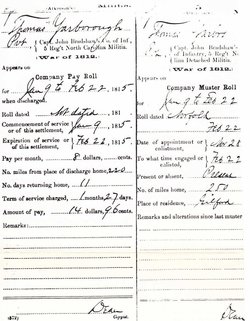 Thomas Yarborough
Pvt, Capt. John Bradshaw's Co. of Inf.,
5 Reg't North Carolina Militia.
War of 1812.
Appears on
Company Pay Roll
for Jan 9 to Feb 22, 1815.
when discharged.
Roll dated Not dated, 181
Commencement of service or of this settlement, Jan 9, 1815.
Expiration of service or of this settlement, Feb 22, 1815.
Pay per month, 8 dollars, cents.
No. miles from place of discharge home, 220
No. days returning home, 11
Term of service charged, 1 months 27 days.
Amount of pay, 14 dollars, 96 cents.
Remarks:
Dean
Copyist.
Thomas
Capt. John Bradshaw's
of Infantry, 5 Reg't
Detached Militia.
War of 1812.
Appears on
Company Muster Roll
for Jan 9 to Feb 22
Roll dated Norfolk
Feb 22
Date of appointment or enlistment, Nov 28
To what time engaged or enlisted, Feb 22
Present or absent, Present
No. of miles home, 250
Place of residence, Guilford
Remarks and alterations since last muster
Dean